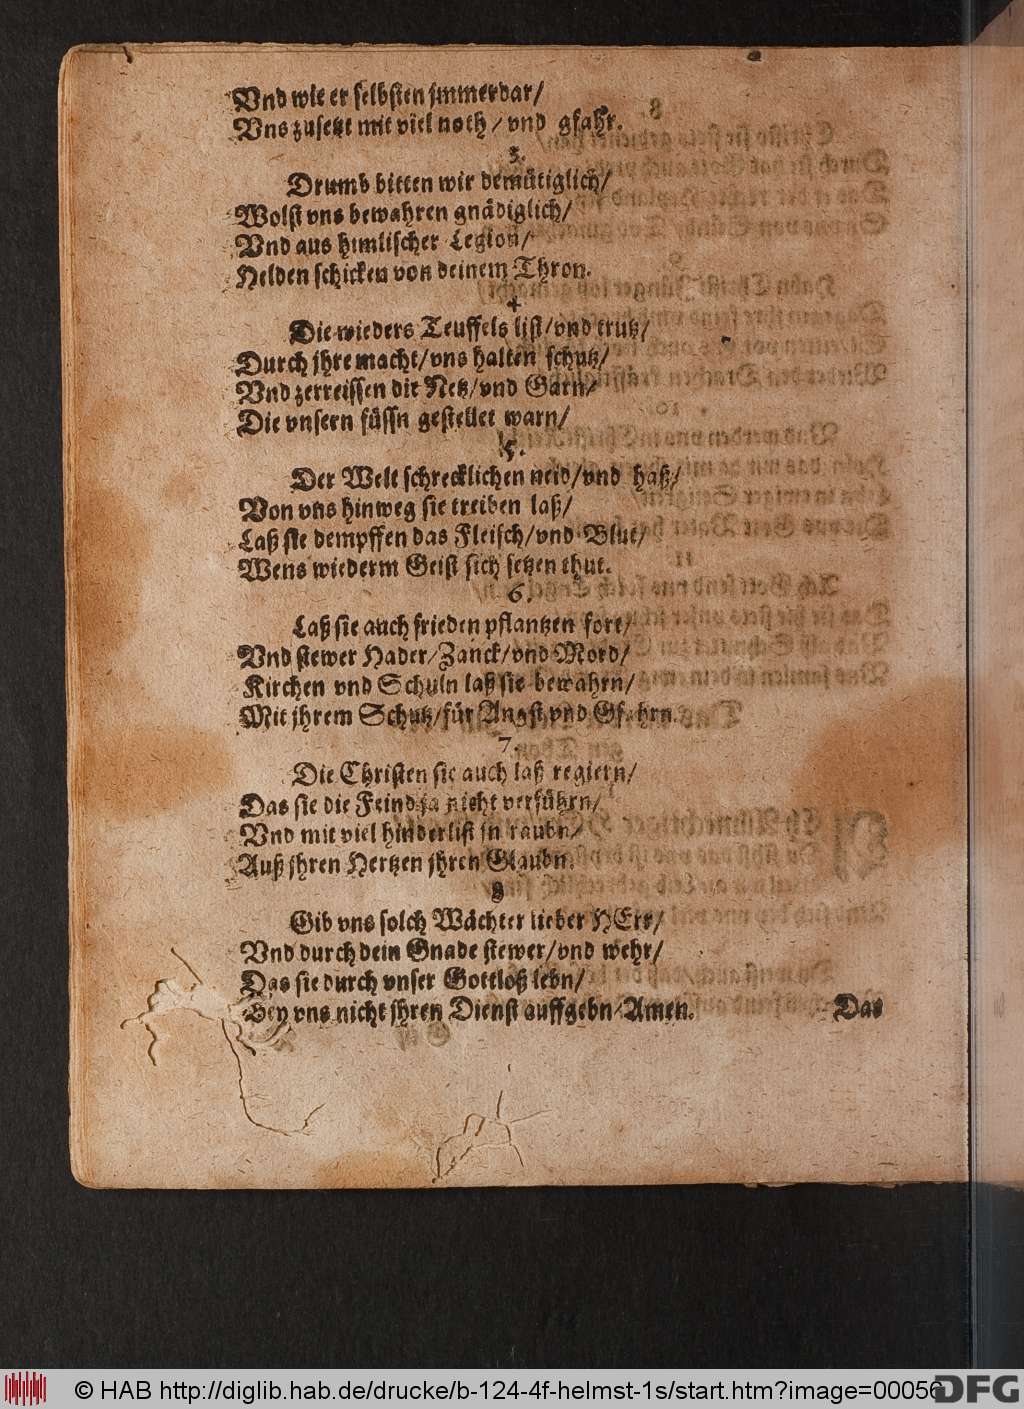 Vnd wie er selbsten jmmerdar/
Vns zusetzt mit viel noth/vnd gfahr.
3.
Drumb bitten wir demütiglich/
Wolst vns bewahren gnädiglich/
Vnd aus himlischer Legion/
Helden schicken von deinem Thron.
4
Die wieders Teuffels list/vnd trutz/
Durch jhre macht/vns halten schutz/
Vnd zerreissen die Netz/vnd Garn/
Die vnsern füssn gestellet warn/
5.
Der Welt schrecklichen neid/vnd haß/
Von vns hinweg sie treiben laß/
Laß sie dempffen das Fleisch/vnd Blut/
Wens wiederm Geist sich setzen thut.
6.
Laß sie auch frieden pflantzen fort/
Vnd stewer Hader/Zanck/vnd Mord/
Kirchen vnd Schuln laß sie bewahrn/
Mit jhrem Schutz/für Angst vnd Gfahrn.
7.
Die Christen sie auch laß regiern/
Das sie die Feind ja nicht verführn/
Vnd mit viel hinderlist jn raubn/
Auß jhren Hertzen jhren Glaubn.
8
Gib vns solch Wächter lieber HErr/
Vnd durch dein Gnade stewer/vnd wehr/
Das sie durch vnser Gottloß lebn/
Bey vns nicht jhren Dienst auffgebn/Amen.
Das
© HAB http://diglib.hab.de/drucke/b-124-4f-helmst-1s/start.htm?image=00056
DFG